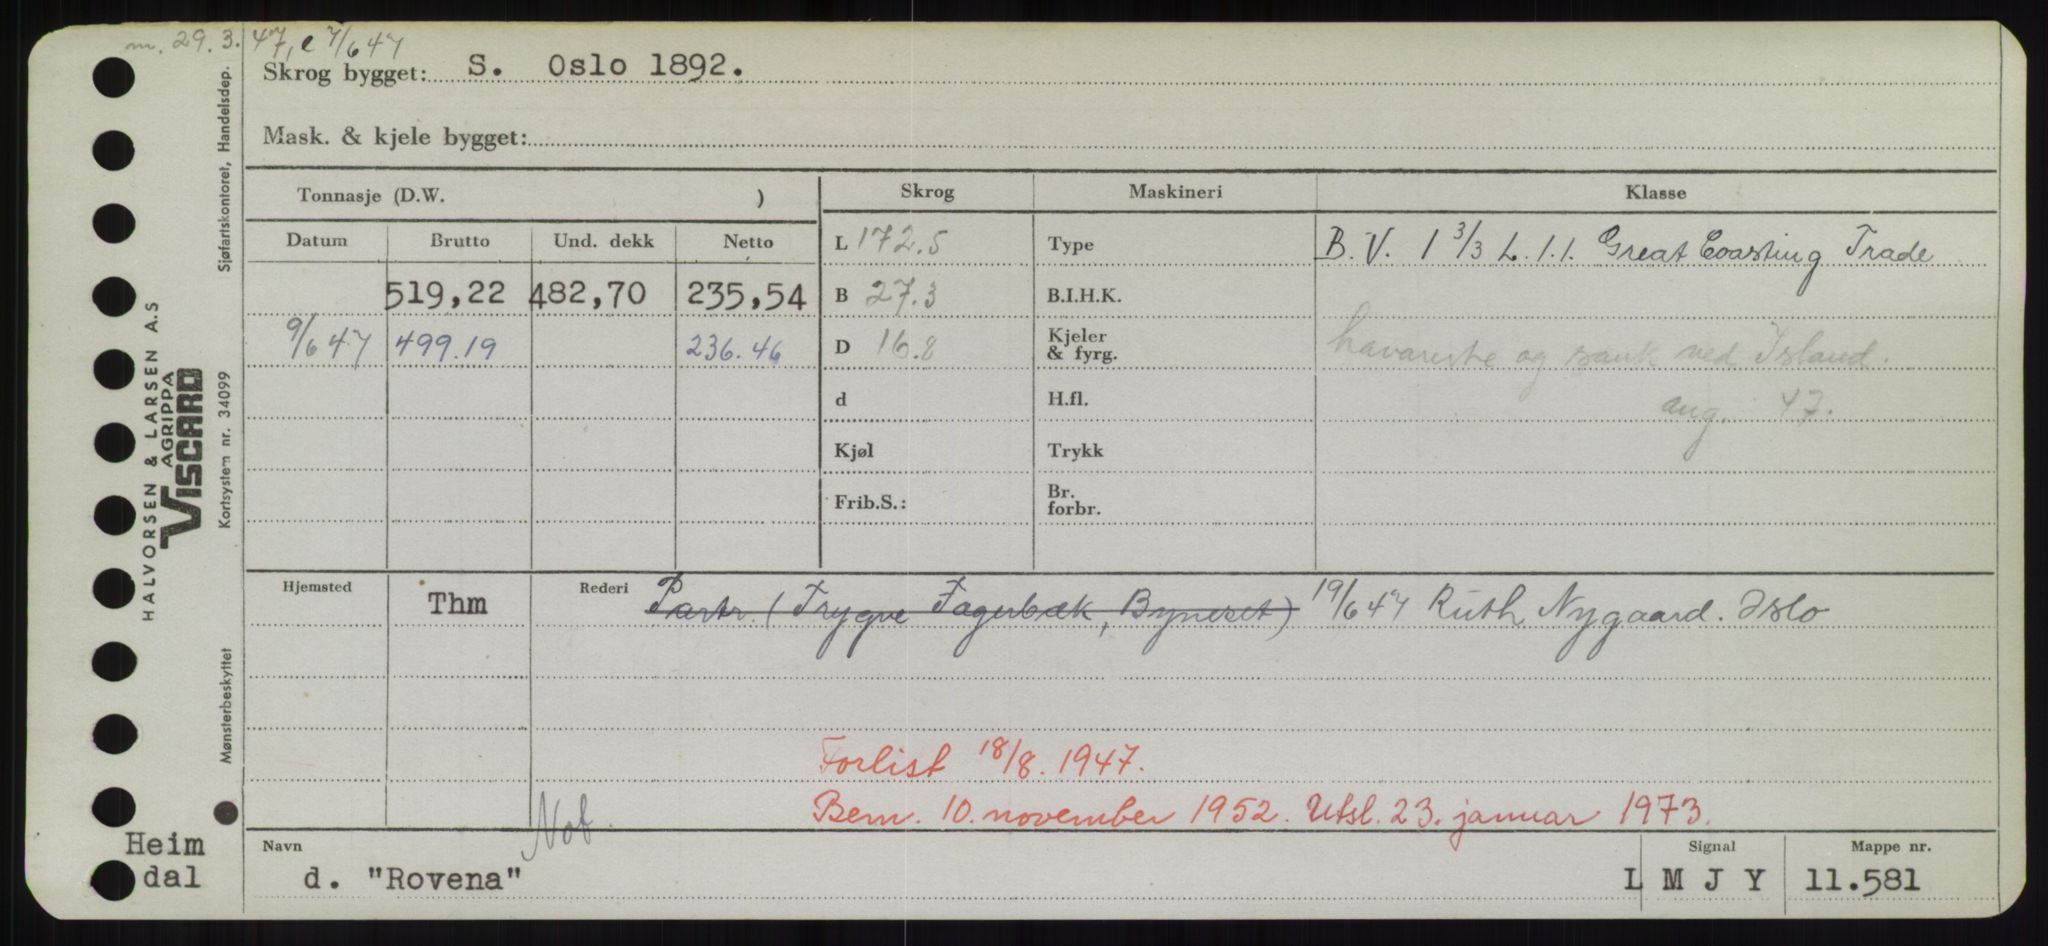 m. 29. 3. 47, e 7/6 47
Skrog bygget: S. Oslo 1892.
Mask. & kjele bygget:
Tonnasje (D.W. ) Skrog Maskineri Klasse
Datum Brutto Und. dekk Netto L 172.5 Type B. V. 1 3/3 L. 1. 1. Great Coasting Trade
519,22 482,70 235,54 B 27.3 B.I.H.K.
9/6 47 499.19 236.46 D 16.8 Kjeler & fyrg. havarerte og sank ved Island.
d H.fl. aug. 47.
Kjøl Trykk
Frib.S.: Br. forbr.
Hjemsted Thm Rederi Partr. (Trygve Fagerbæk, Byneset) 19/6 47 Ruth Nygaard. Oslo
Forlist 18/8. 1947.
Bem. 10. november 1952. Utsl. 23. januar 1973.
Not.
Navn Signal Mappe nr.
d. "Rovena" L M J Y 11.581
Heim
dal
HALVORSEN & LARSEN A.S
AGRIPPA
VISCARD
Mønsterbeskyttet Kortsystem nr. 34099 Sjøfartskontoret, Handelsdep.